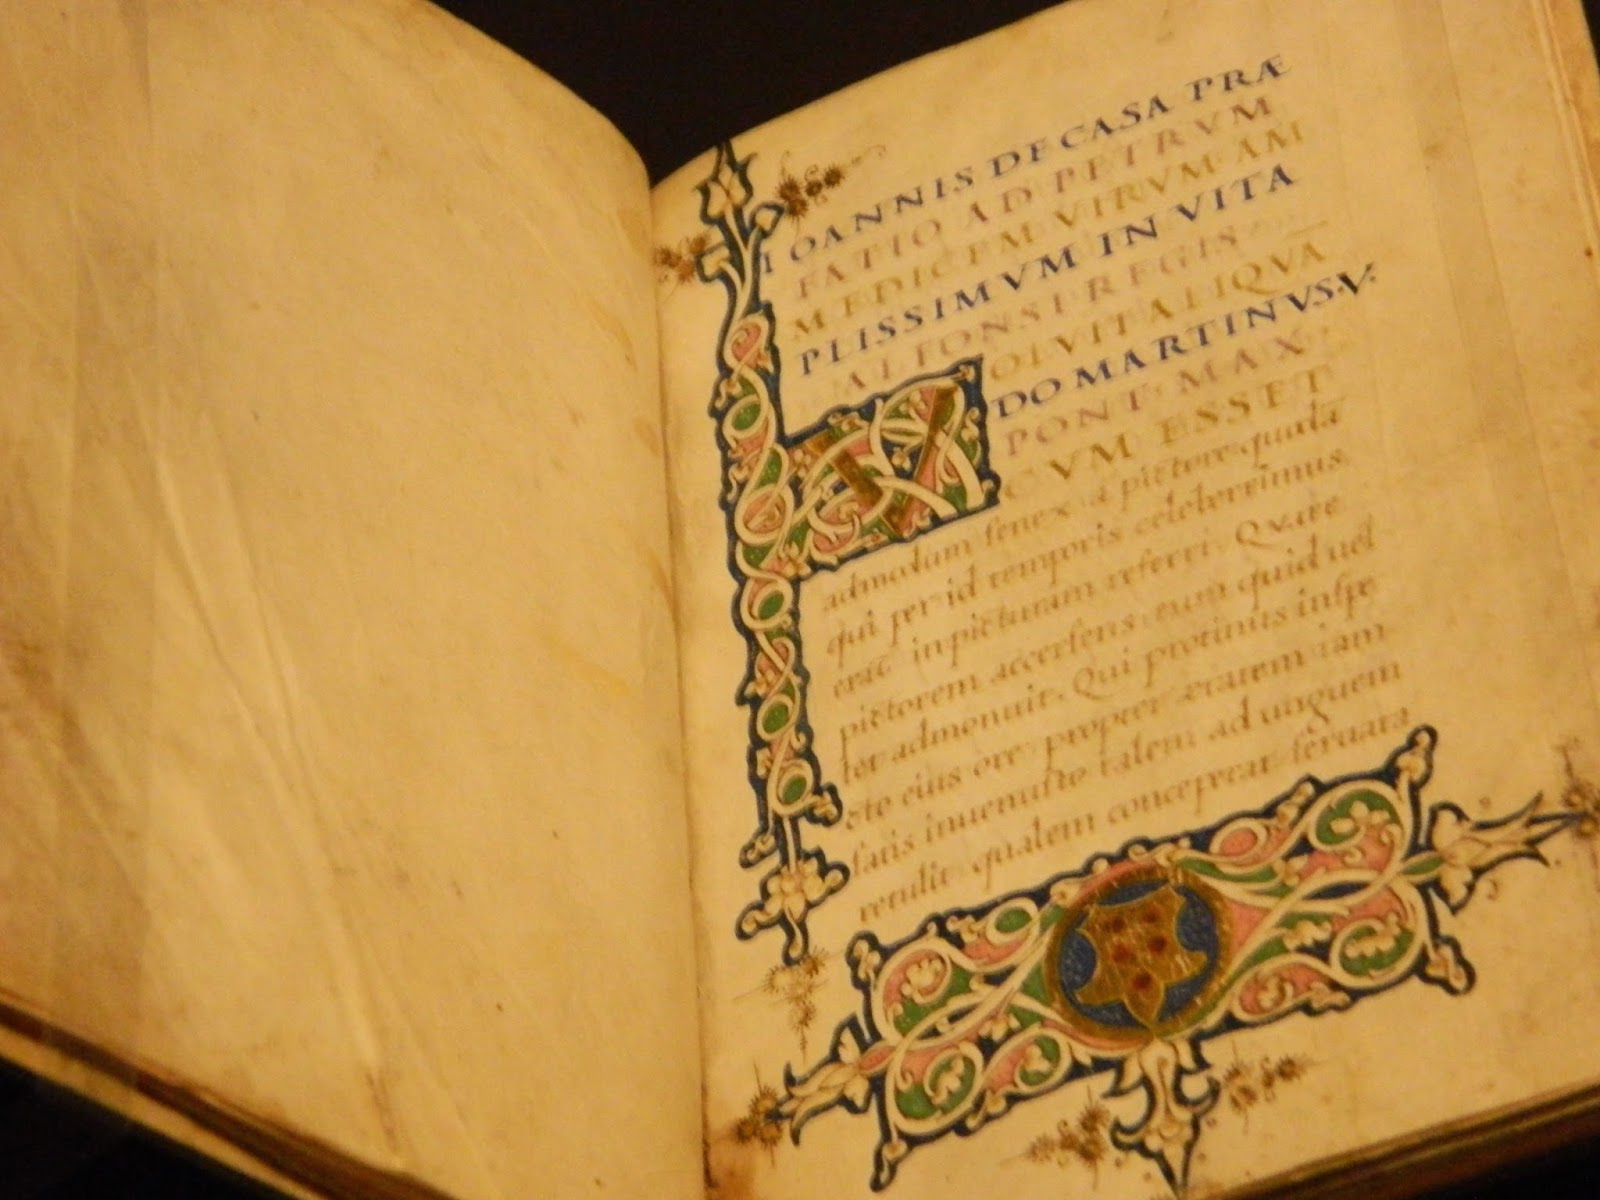 IOANNIS DE CASA PRÆ
FATIO AD PETRVM
MEDICEM VIRVM AM
PLISSIMVM IN VITA
ALFONSI REGIS
VOLVIT ALIQVA
DO MARTINVS·V·
PONT·MAX
CVM ESSET
admodum senex a pictore quodā
qui per id temporis celeberrimus
erat in picturam referri. Quare
pictorem accersens, eum quid uel
let admonuit. Qui protinus inspe
cto eius ore propter ætatem iam
satis inuenusto talem ad unguem
retulit, qualem conceperat seruata